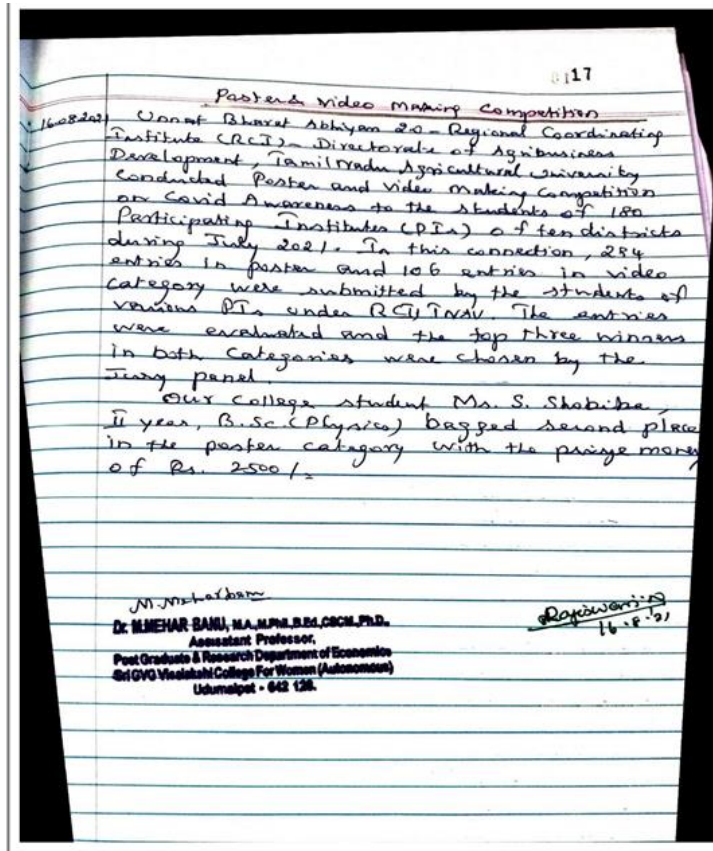 0117
Poster & Video Making Competition
16.08.2021 Unnat Bharat Abhiyan 2.0 - Regional Coordinating
Institute (RCI) - Directorate of Agribusiness
Development, Tamil Nadu Agricultural University
Conducted Poster and Video Making Competition
on Covid Awareness to the students of 180
Participating Institutes (PIs) of ten districts
during July 2021. In this connection, 294
entries in poster and 106 entries in video
category were submitted by the students of
various PIs under RCI, TNAU. The entries
were evaluated and the top three winners
in both Categories were chosen by the
Jury panel.
Our College student Ms. S. Shobiba,
II year, B.Sc. (Physics) bagged second place
in the poster category with the prize money
of Rs. 2500/-
M. Meharbanu
Dr. M.MEHAR BANU, M.A.,M.Phil.,B.Ed.,CSCM.,Ph.D.,
Assistant Professor,
Post Graduate & Research Department of Economics
Sri GVG Visalakshi College For Women (Autonomous)
Udumalpet - 642 128.
Rajeswari.N
16.8.21